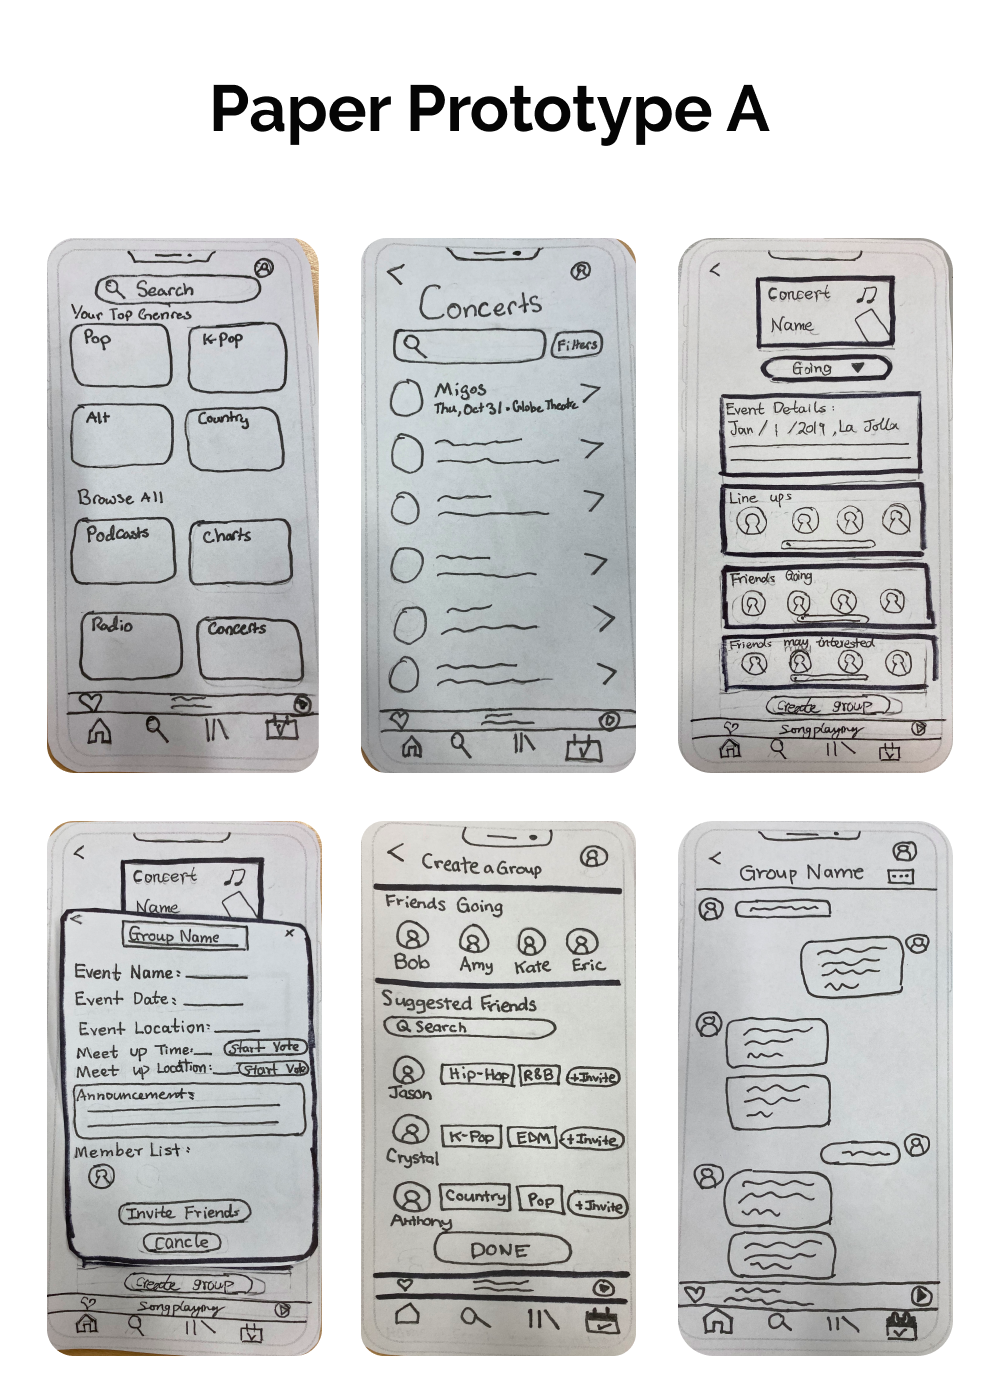 Paper Prototype A
Search
Your Top Genres
Pop
K-Pop
Alt
Country
Browse All
Podcasts
Charts
Radio
Concerts
Concerts
Filters
Migos
Thu, Oct 31 • Globe Theatre
Concert
Name
Going
Event Details:
Jan / 1 / 2019, La Jolla
Line ups
Friends Going
Friends may interested
Create group
Song playing
Concert
Name
Group Name
x
Event Name:
Event Date:
Event Location:
Meet up Time: Start Vote
Meet up Location: Start Vote
Announcement:
Member List:
Invite Friends
Cancle
Create group
Song playing
Create a Group
Friends Going
Bob Amy Kate Eric
Suggested Friends
Search
Hip-Hop R&B +Invite
Jason
K-Pop EDM +Invite
Crystal
Country Pop +Invite
Anthony
DONE
Group Name